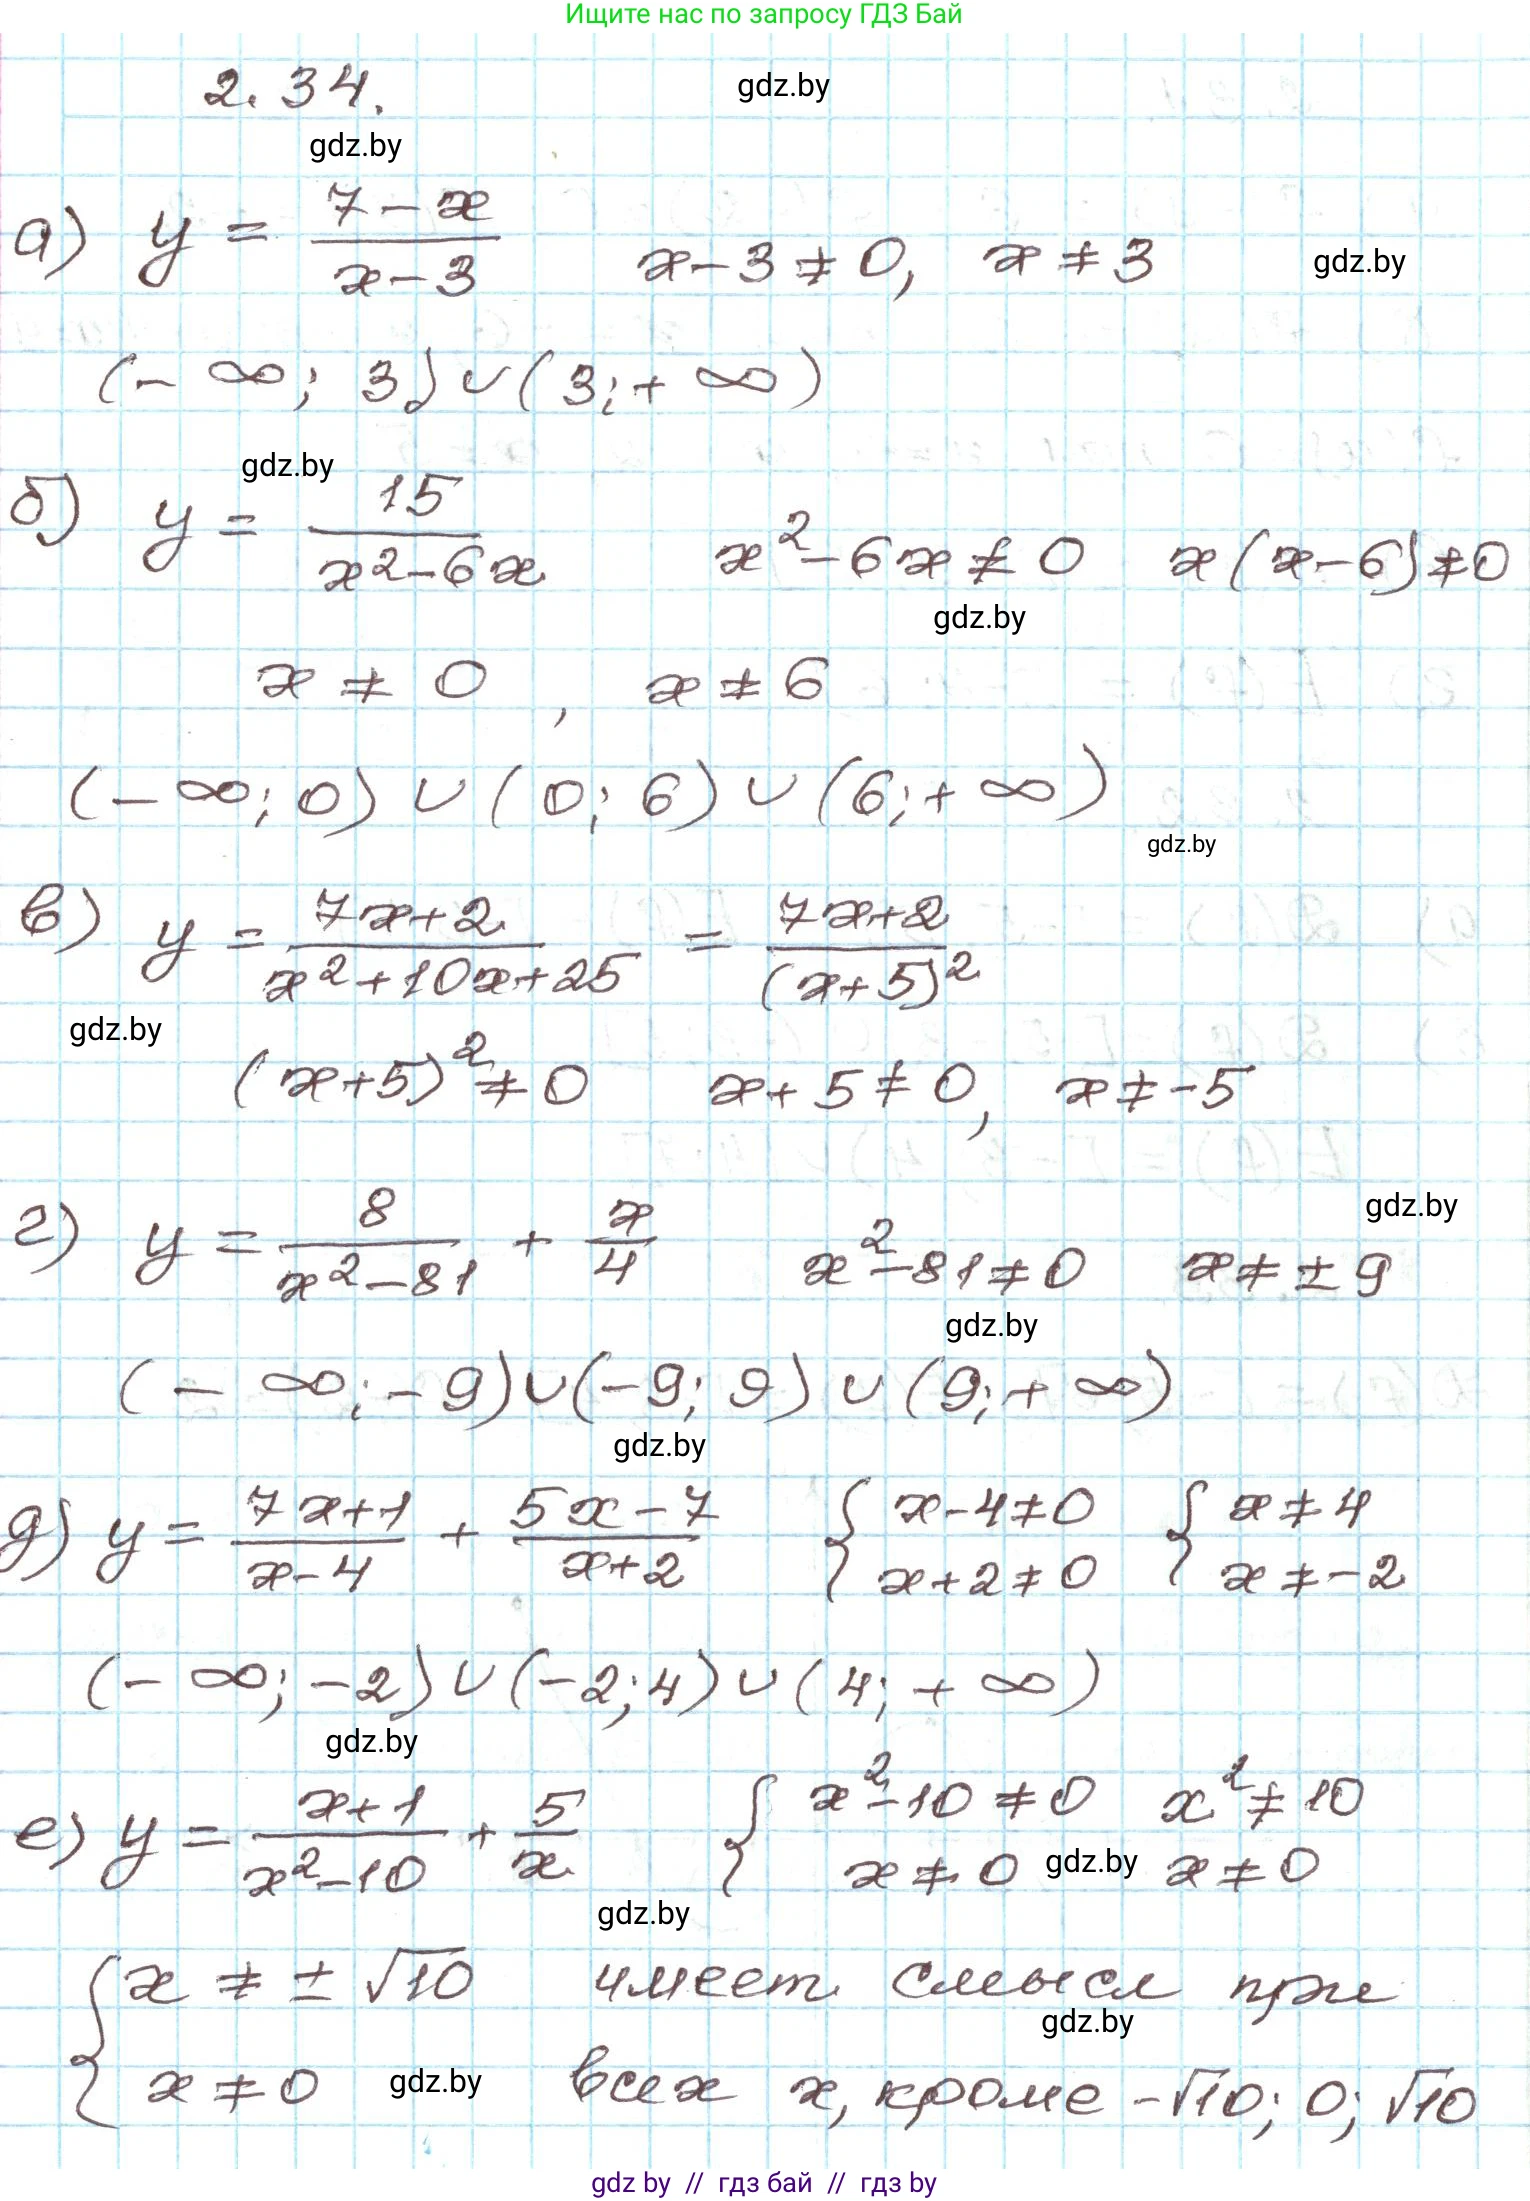 Ищите нас по запросу ГДЗ Бай
2.34.
gdz.by
gdz.by
а) y = (7 - x)/(x - 3)   x - 3 ≠ 0, x ≠ 3
gdz.by
(-∞; 3) ∪ (3; +∞)
gdz.by
б) y = 15/(x² - 6x)   x² - 6x ≠ 0   x(x - 6) ≠ 0
gdz.by
x ≠ 0, x ≠ 6
(-∞; 0) ∪ (0; 6) ∪ (6; +∞)
gdz.by
в) y = (7x + 2)/(x² + 10x + 25) = (7x + 2)/(x + 5)²
gdz.by
(x + 5)² ≠ 0   x + 5 ≠ 0, x ≠ -5
г) y = 8/(x² - 81) + x/4   x² - 81 ≠ 0   x ≠ ±9
gdz.by
gdz.by
(-∞; -9) ∪ (-9; 9) ∪ (9; +∞)
gdz.by
д) y = (7x + 1)/(x - 4) + (5x - 7)/(x + 2)   { x - 4 ≠ 0   { x ≠ 4
x + 2 ≠ 0   x ≠ -2
(-∞; -2) ∪ (-2; 4) ∪ (4; +∞)
gdz.by
е) y = (x + 1)/(x² - 10) + 5/x   { x² - 10 ≠ 0   x² ≠ 10
x ≠ 0   gdz.by   x ≠ 0
gdz.by
{ x ≠ ±√10   имеет смысл при
gdz.by
x ≠ 0   gdz.by   всех x, кроме -√10; 0; √10
gdz by // гдз бай // гдз by